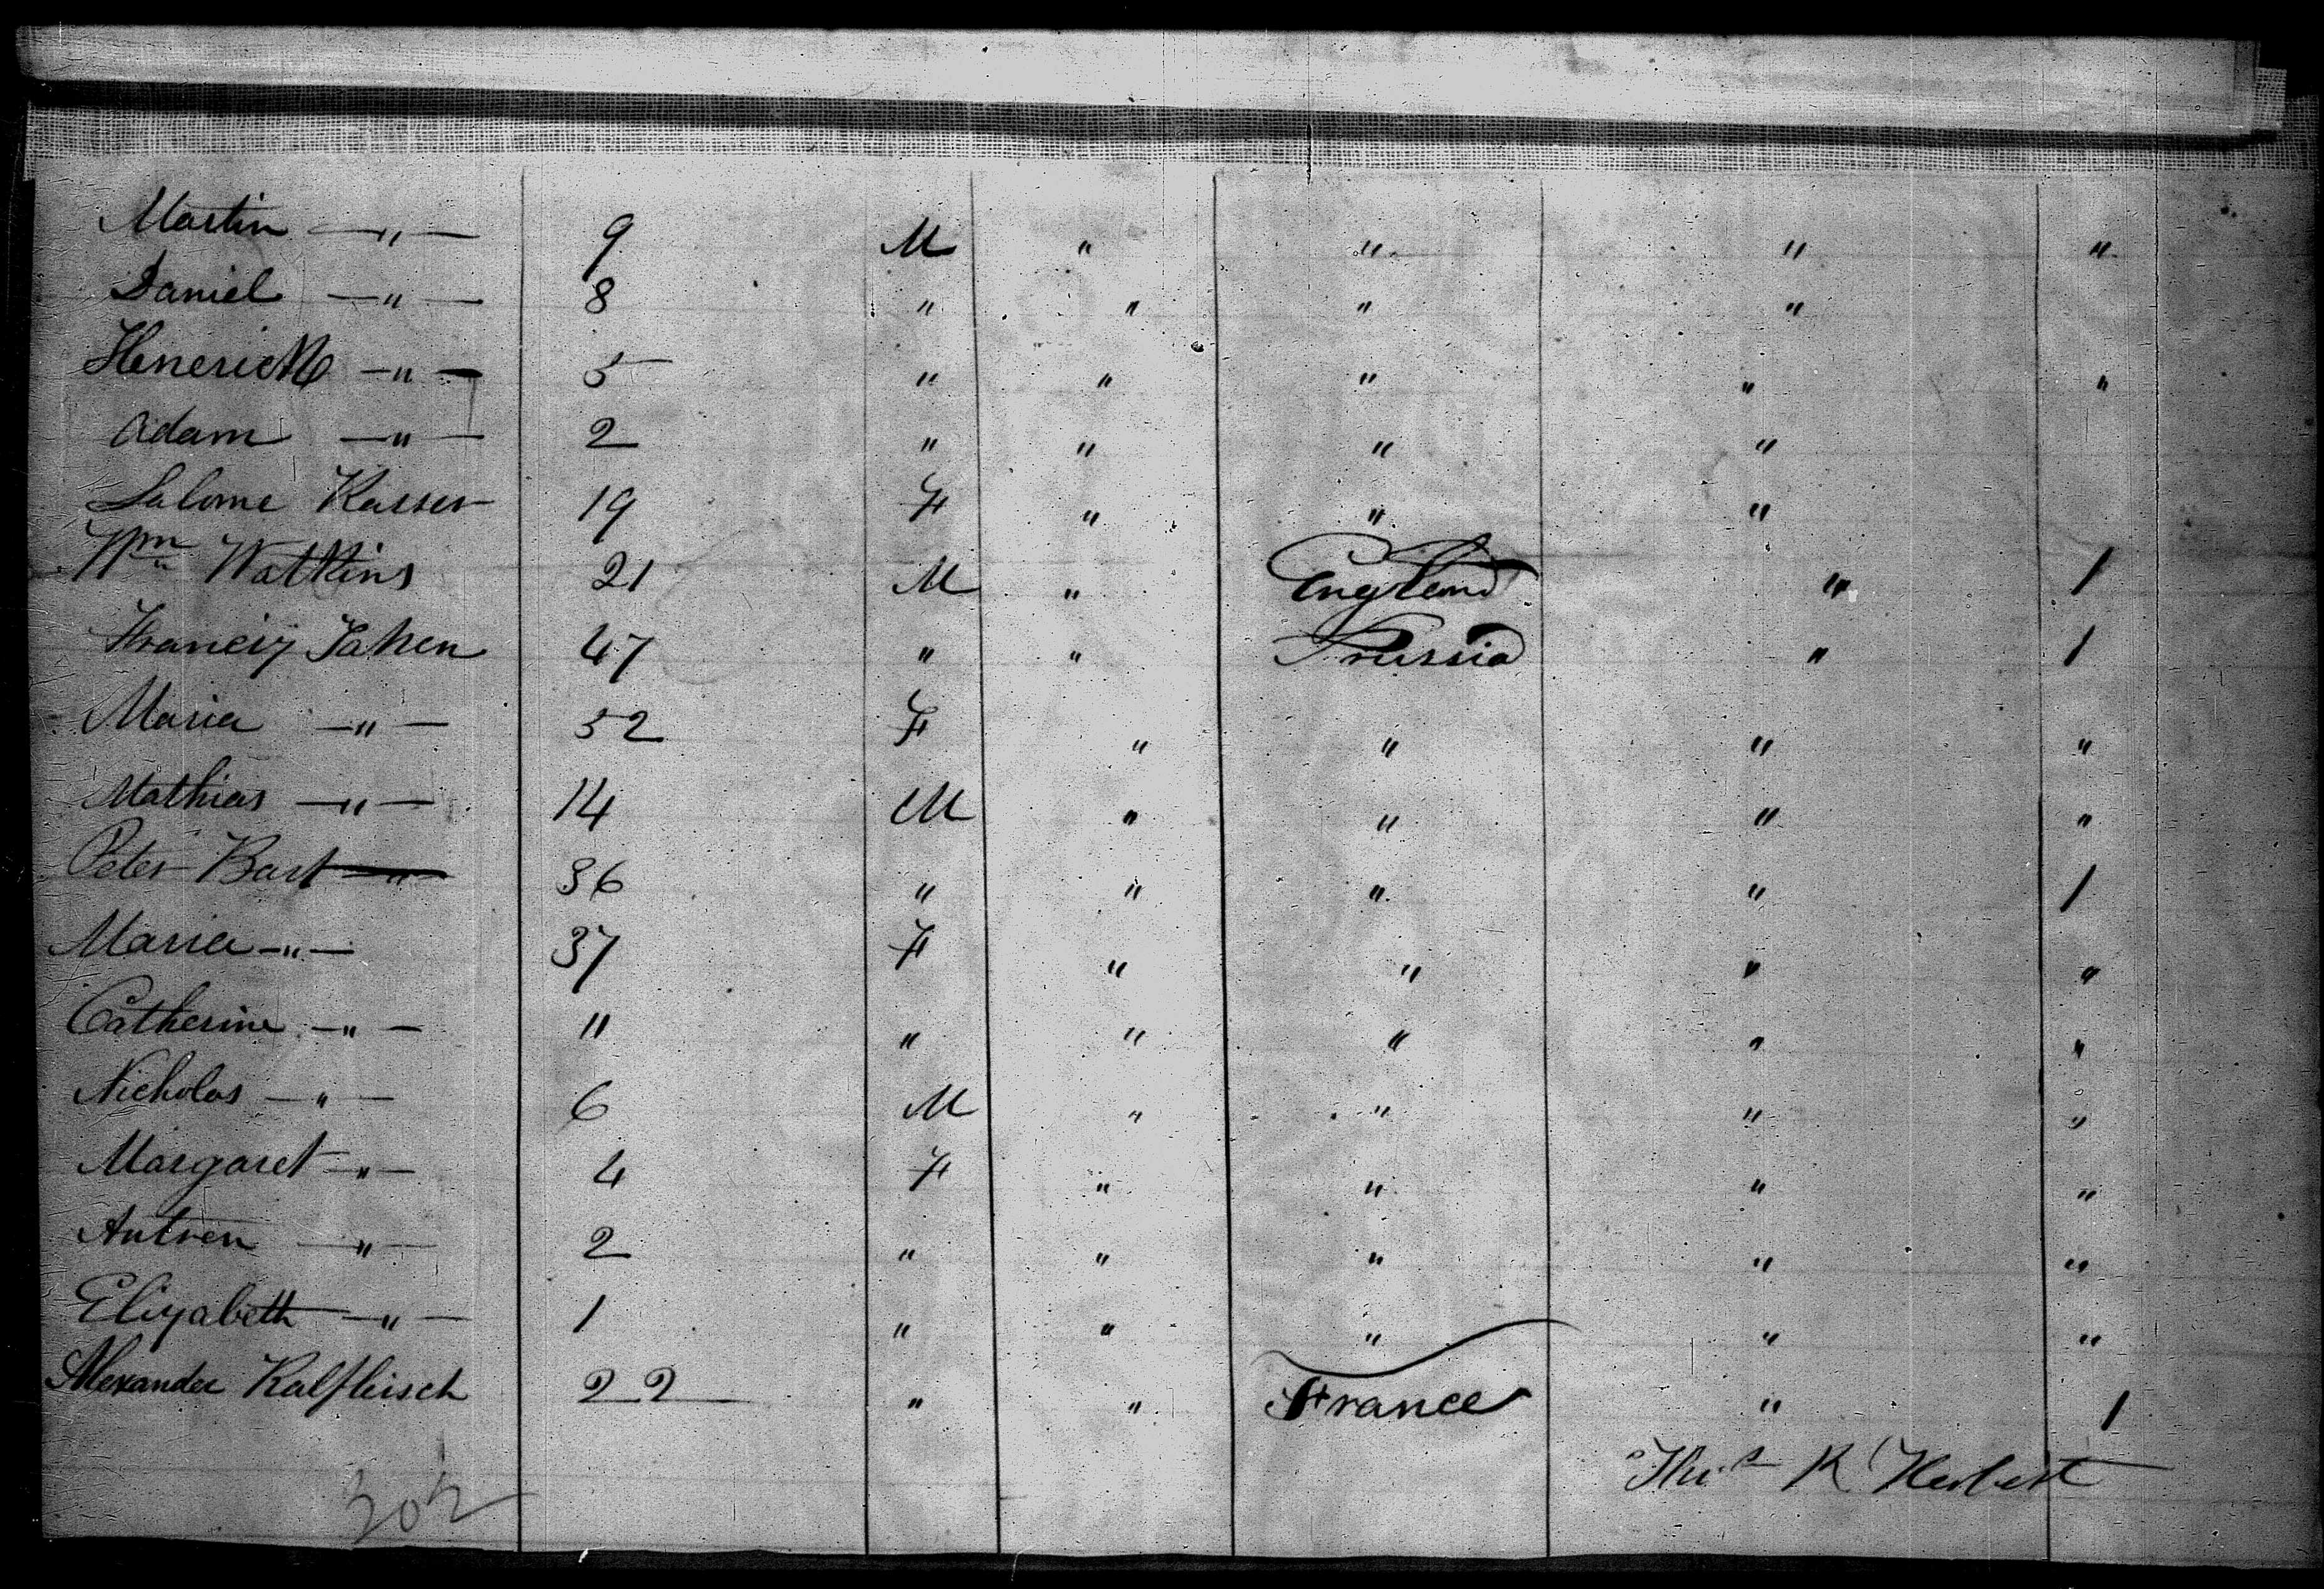 Martin —"— 9 M " " " "
Daniel —"— 8 " " " "
Henerich —"— 5 " " " " "
Adam —"— 2 " " " "
Salome Kasser 19 F " " "
Wm Watkins 21 M " England " 1
Francis Jahen 47 " " Prussia " 1
Maria —"— 52 F " " " "
Mathias —"— 14 M " " " "
Peter Bart —"— 36 " " " " 1
Maria —"— 37 F " " " "
Catherine —"— 11 " " " " "
Nicholas —"— 6 M " " " "
Margaret —"— 4 F " " " "
Antren —"— 2 " " " " "
Elizabeth —"— 1 " " " " "
Alexander Kalfleisch 22 " " France " 1
K Herbert